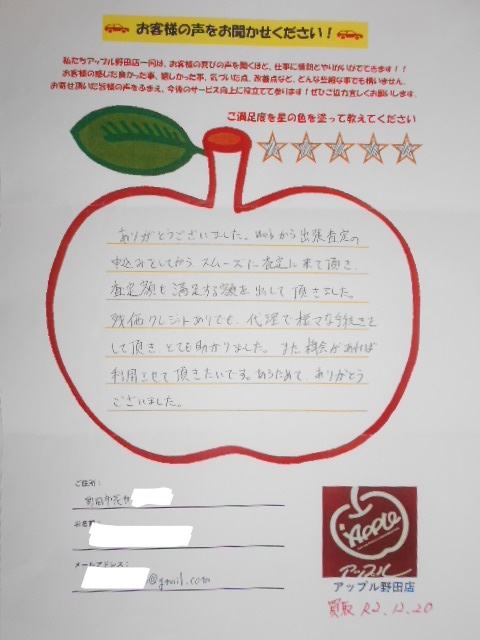 お客様の声をお聞かせください！
私たちアップル野田店一同は、お客様の喜びの声を聞くほど、仕事に情熱とやりがいがでてきます！！
お客様の感じた良かった事、嬉しかった事、気づいた点、改善点など、どんな些細な事でも構いません。
お寄せ頂いた皆様の声をふまえ、今後のサービス向上に役立てて参ります！ぜひご協力宜しくお願いします。
ご満足度を星の色を塗って教えてください
ありがとうございました。Webから出張査定の
申込みをしてから スムーズに査定に来て頂き、
査定額も満足する額を出して頂きました。
残価クレジットありでも、代理で様々な手続きを
して頂き、とても助かりました。また機会があれば
利用させて頂きたいです。あらためて、ありがとう
ございました。
ご住所：
野田市花井
お名前：
メールアドレス：
@gmail.com
Apple
アップル
アップル野田店
買取 R2.12.20